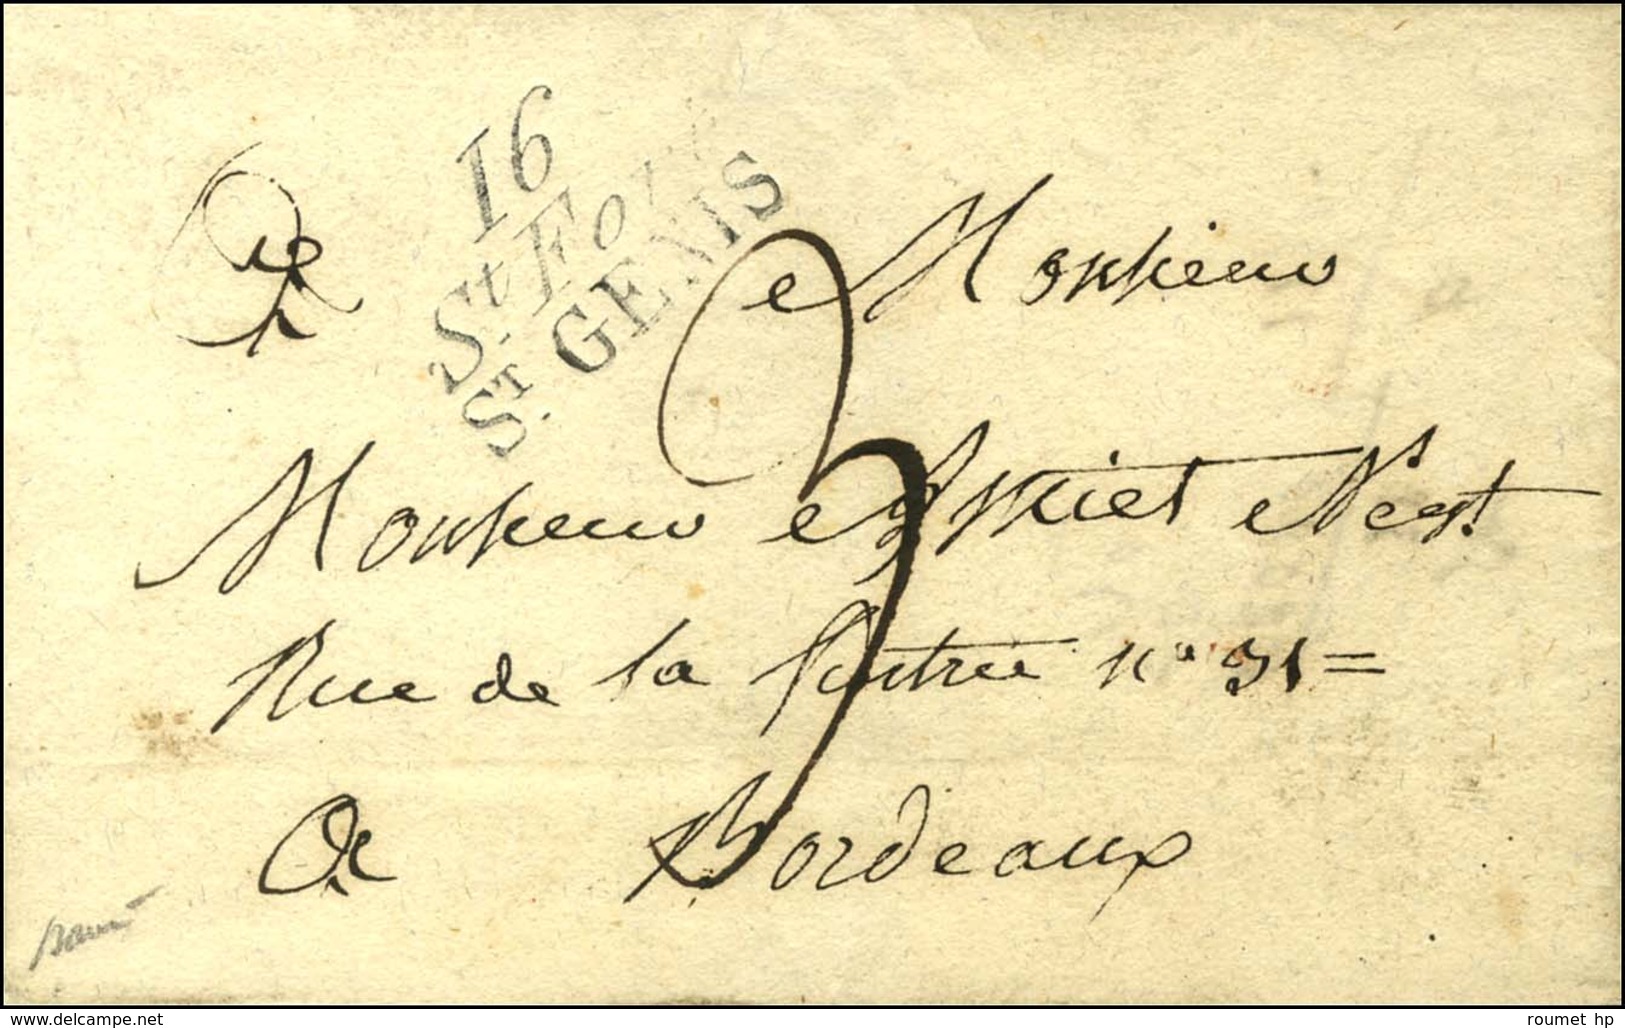 16
St. Foy
St. GENIS
A Monsieur
Monsieur Négt.
Rue de la n° 31 =
A Bordeaux
www.delcampe.net
roumet hp